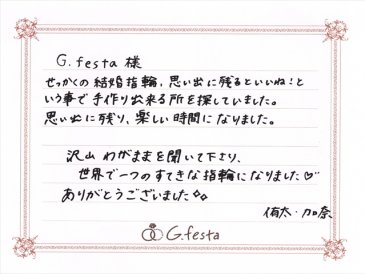 G.festa 様
せっかくの結婚指輪、思い出に残るといいね!と
いう事で手作り出来る所を探していました。
思い出に残り、楽しい時間になりました。
沢山 わがままを聞いて下さり、
世界で一つのすてきな指輪になりました♡
ありがとうございました◇◇
侑太・加奈
G.festa